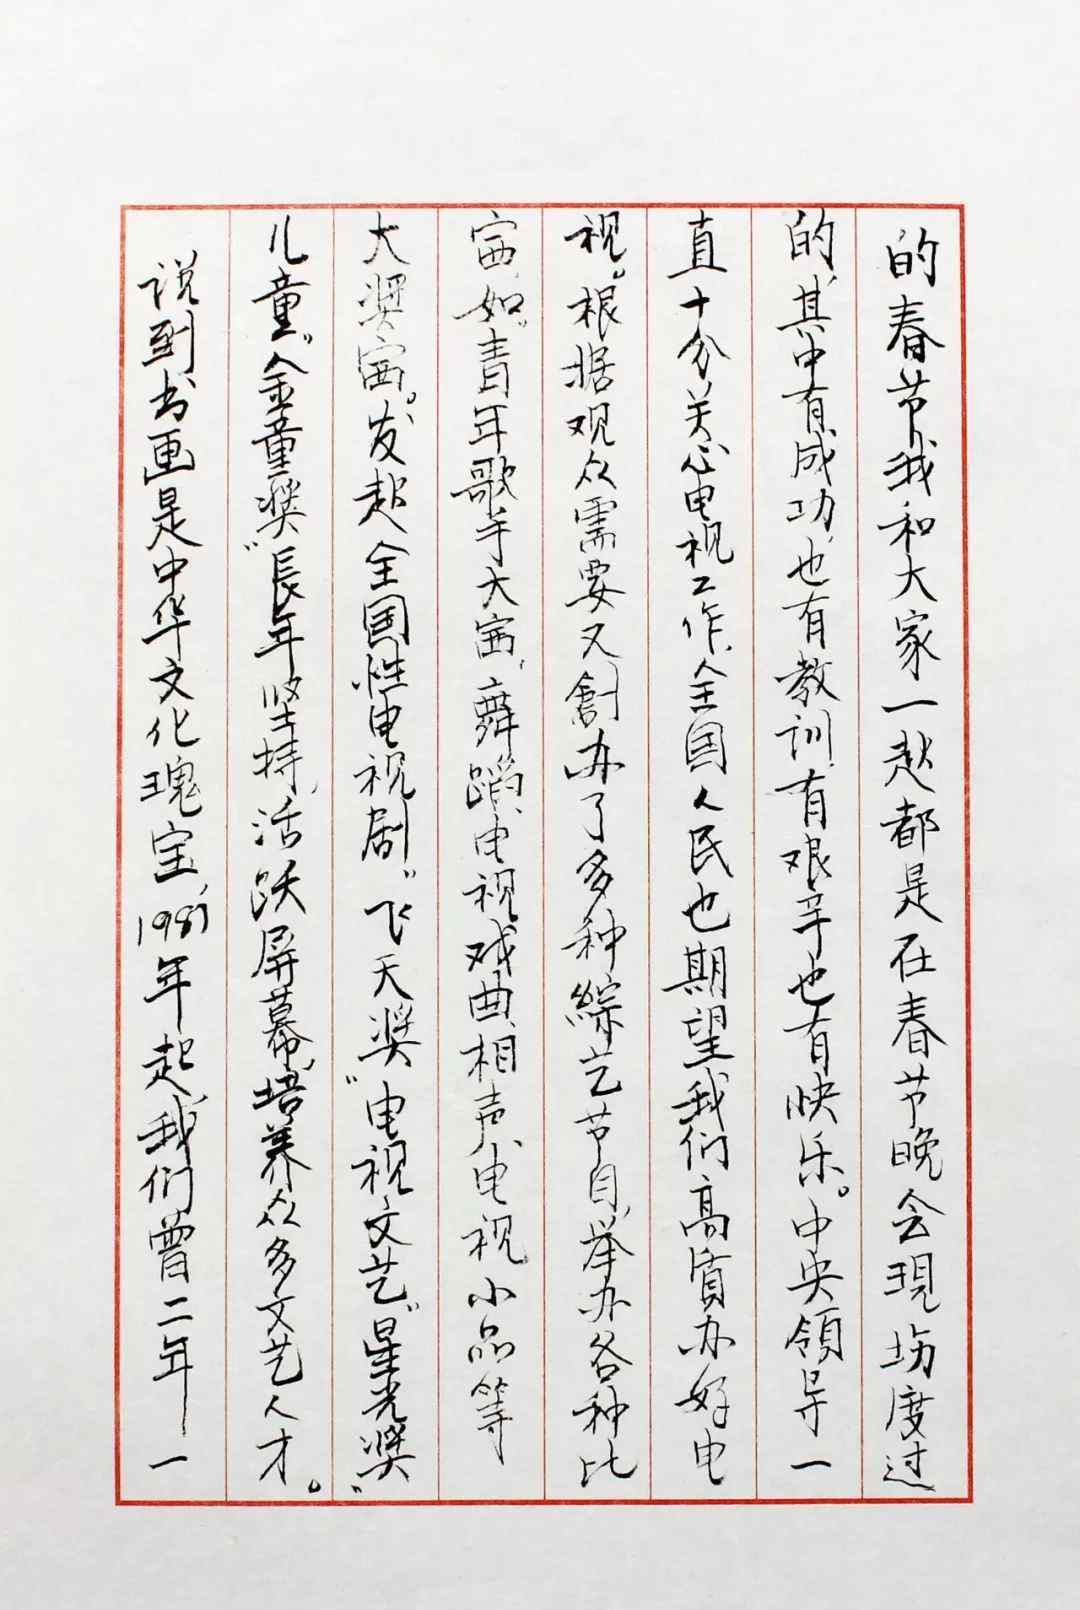 的春节我和大家一起都是在春节晚会現场度过
的,其中有成功,也有教训,有艰辛也有快乐。中央领导一
直十分关心电视工作,全国人民也期望我们高质办好电
视。根据观众需要又創办了多种綜艺节目,举办各种比
赛,如"青年歌手大赛",舞蹈、电视戏曲、相声、电视小品等
大奖赛。发起全国性电视剧"飞天奖"电视文艺"星光奖"
儿童"金童奖"長年坚持,活跃屏幕,培养众多文艺人才。
说到书画是中华文化瑰宝,1987年起,我们曾二年一